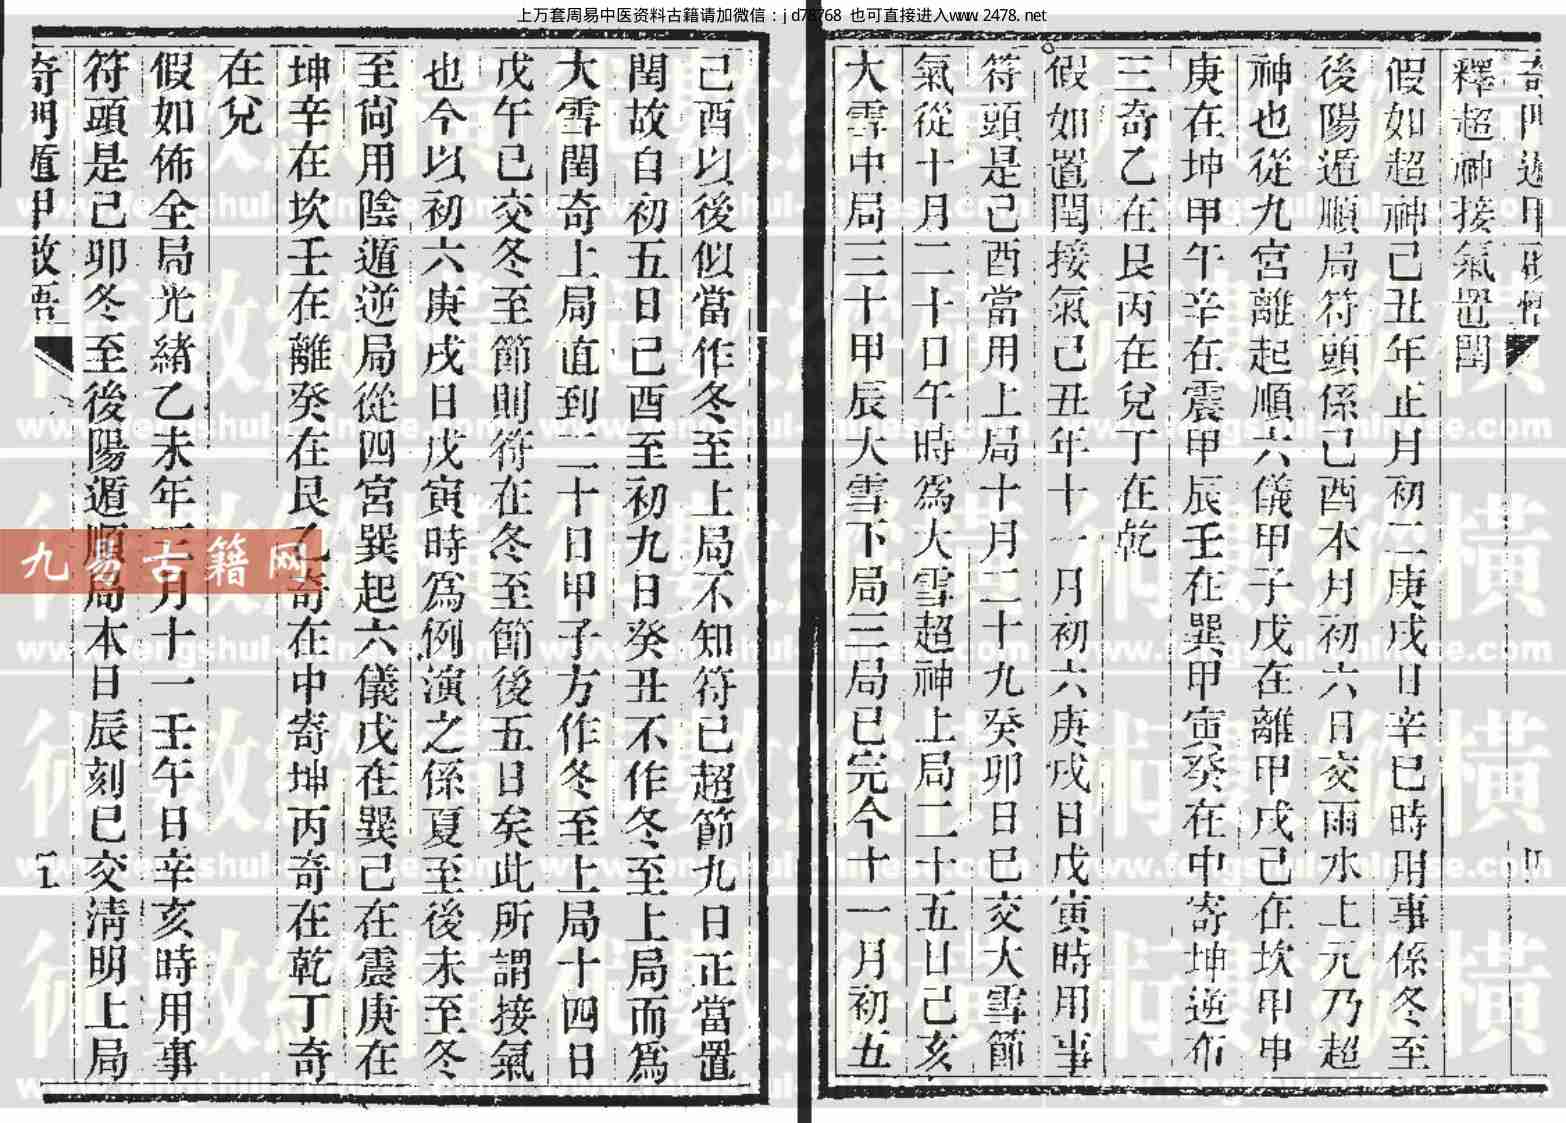 上万套周易中医资料古籍请加微信：jd78768 也可直接进入www.2478.net
奇門遁甲
釋超神接氣置閏
假如超神己丑年正月初二庚戌日辛巳時用事係冬至
後陽遁順局符頭係己酉本月初六日交雨水上元乃超
神也從九宮離起順六儀甲子戊在離甲戌己在坎甲申
庚在坤甲午辛在震甲辰壬在巽甲寅癸在中寄坤逆布
三奇乙在艮丙在兌丁在乾
假如置閏接氣己丑年十一月初六庚戌日戊寅時用事
符頭是己酉當用上局十月二十九癸卯日巳交大雪節
氣從十月二十日午時為大雪超神上局二十五日己亥
大雪中局三十甲辰大雪下局三局已完今十一月初五
己酉以後似當作冬至上局不知符已超節九日正當置
閏故自初五日己酉至初九日癸丑不作冬至上局而為
大雪閏奇上局直到二十日甲子方作冬至上局十四日
戊午已交冬至節則符在冬至節後五日矣此所謂接氣
也今以初六庚戌日戊寅時為例演之係夏至後未至冬
至尚用陰遁逆局從四宮巽起六儀戊在巽己在震庚在
坤辛在坎壬在離癸在艮乙奇在中寄坤丙奇在乾丁奇
在兌
假如佈全局光緒乙未年三月十一壬午日辛亥時用事
符頭是己卯冬至後陽遁順局本日辰刻已交清明上局
奇門遁甲
九易古籍网
橫縱數術
www.fengshui-chinese.com